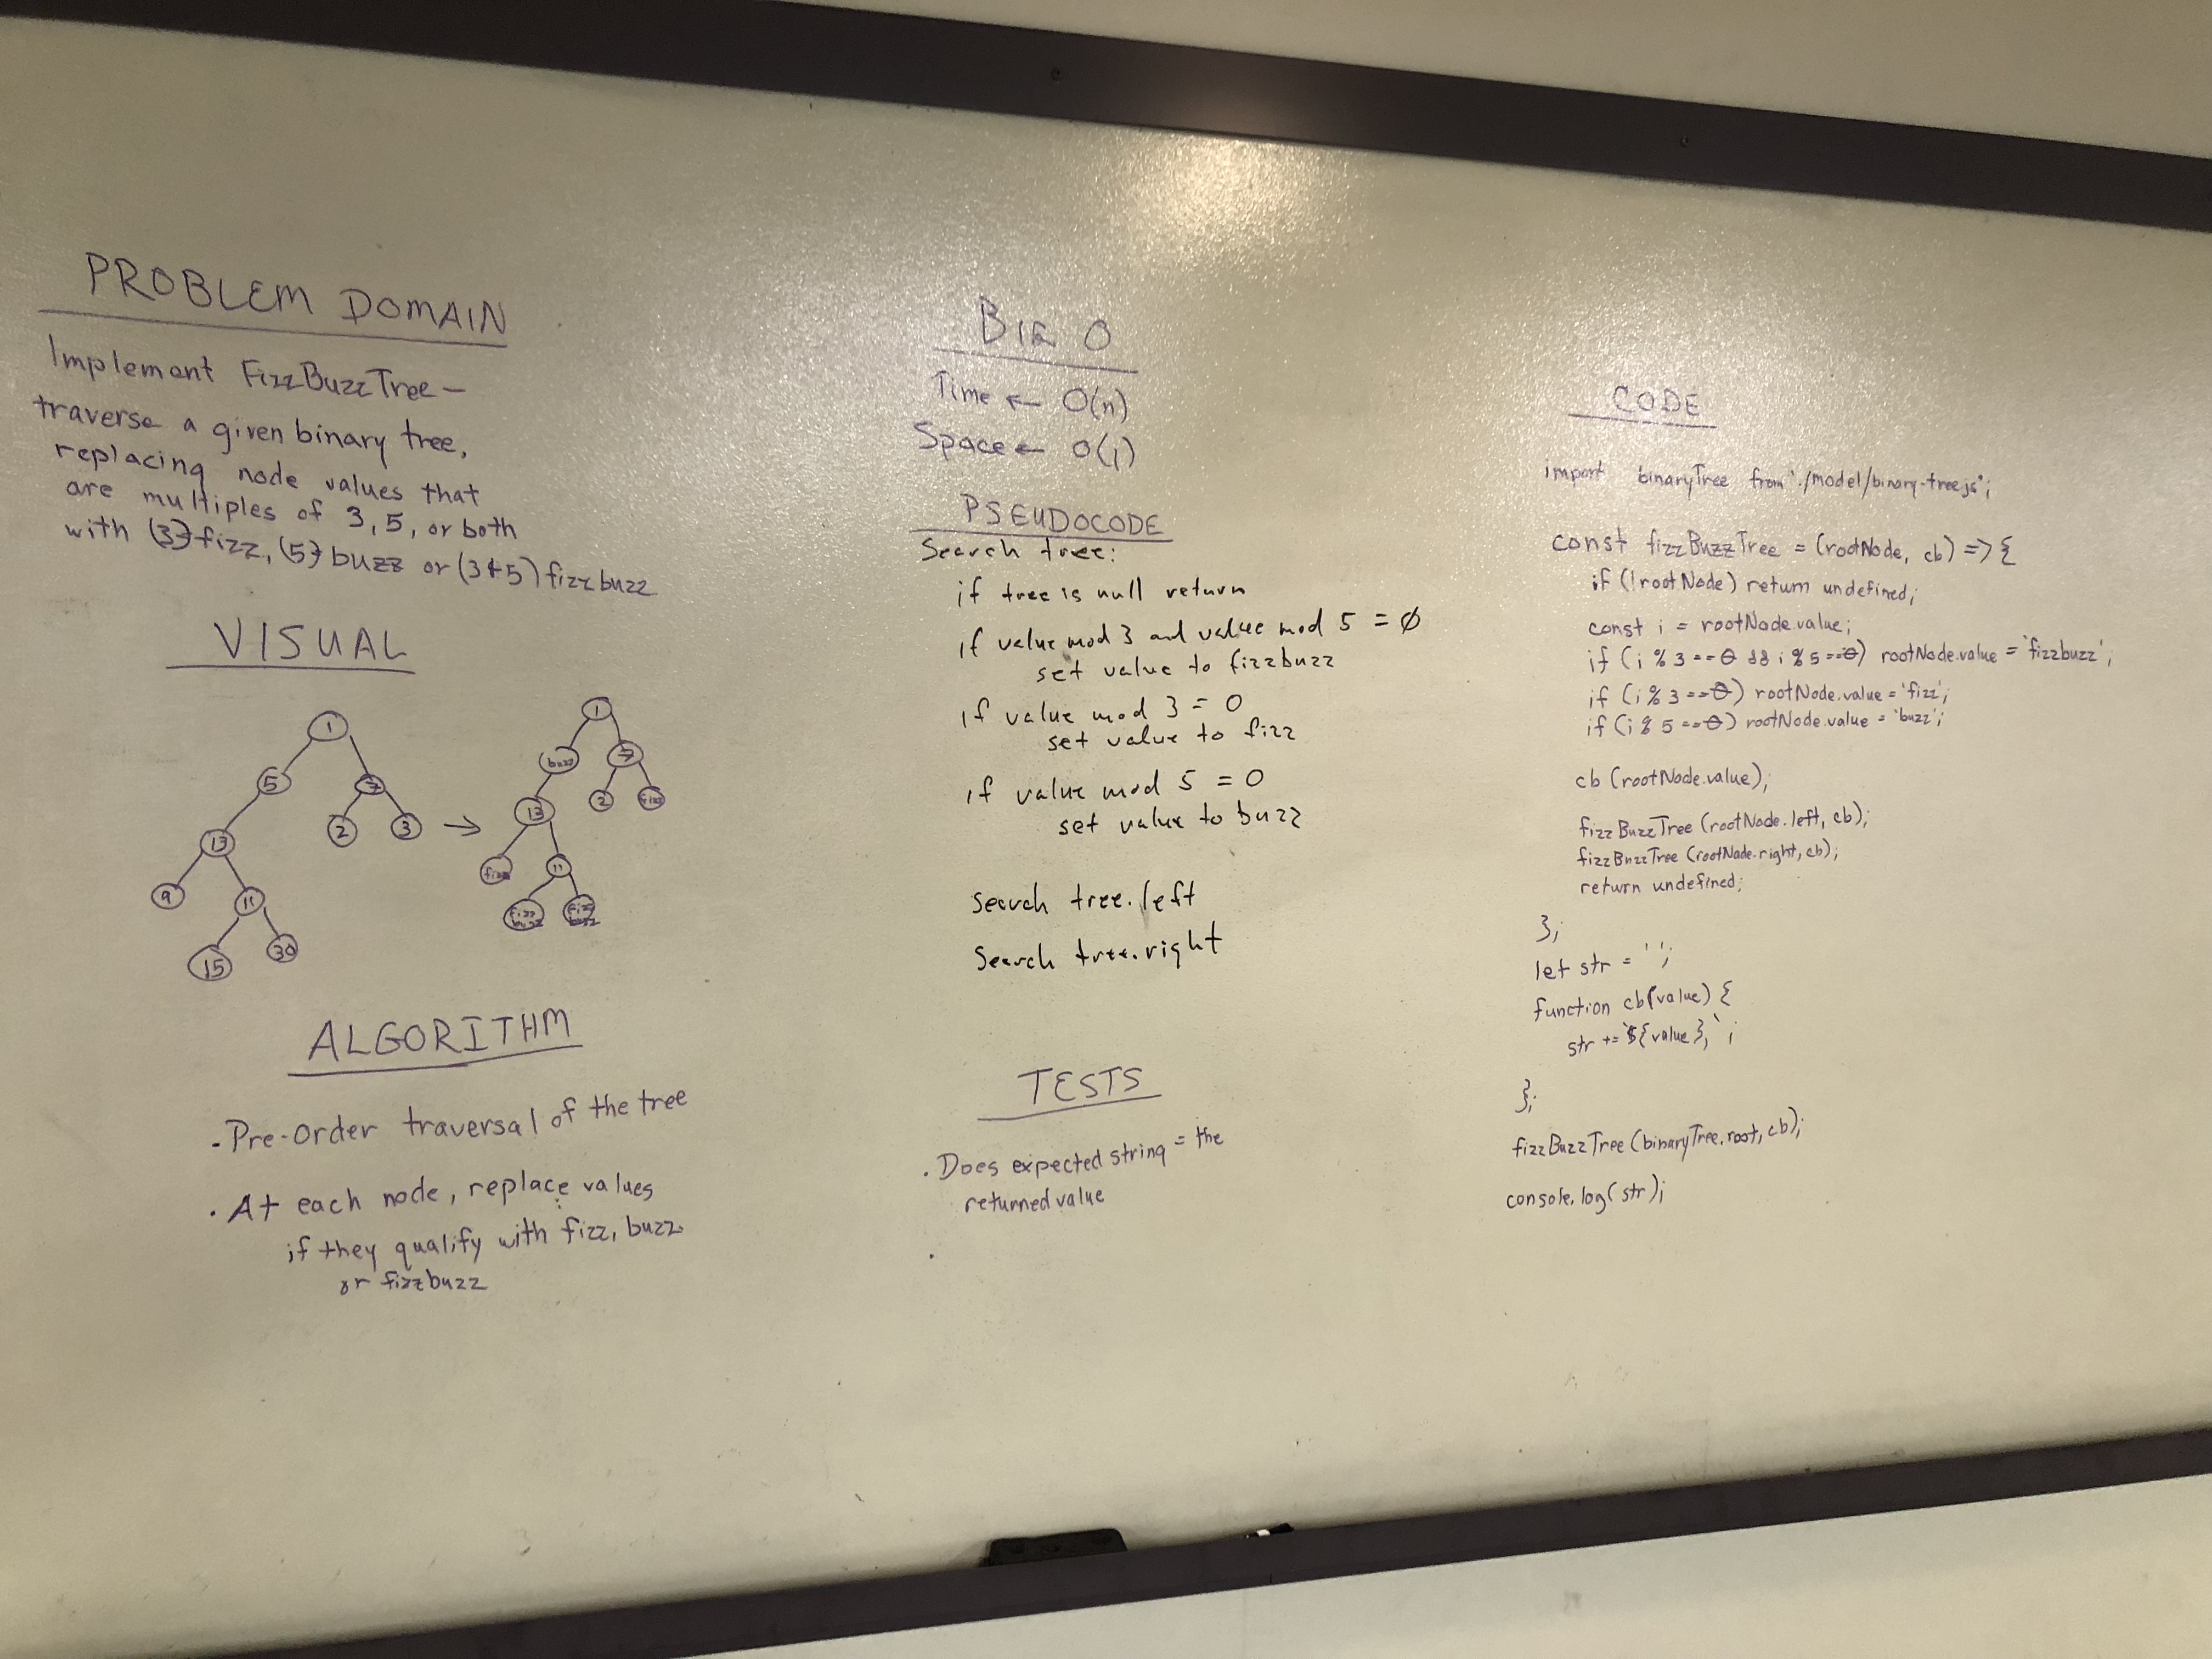 PROBLEM DOMAIN
Implement FizzBuzzTree —
traverse a given binary tree,
replacing node values that
are multiples of 3, 5, or both
with (3) fizz, (5) buzz or (3+5) fizzbuzz
VISUAL
1
5 7
13 2 3
9 11
15 30
→
1
buzz 7
13 2 fizz
fizz 11
fizz buzz fizz buzz
ALGORITHM
- Pre-Order traversal of the tree
• At each node, replace values
if they qualify with fizz, buzz
or fizzbuzz
BIG O
Time ← O(n)
Space ← O(1)
PSEUDOCODE
Search tree:
if tree is null return
if value mod 3 and value mod 5 = Ø
set value to fizzbuzz
if value mod 3 = 0
set value to fizz
if value mod 5 = 0
set value to buzz
Search tree.left
Search tree.right
TESTS
• Does expected string = the
returned value
CODE
import binaryTree from './model/binary-tree.js';
const fizzBuzzTree = (rootNode, cb) => {
if (!rootNode) return undefined;
const i = rootNode.value;
if (i % 3 == 0 && i % 5 == 0) rootNode.value = 'fizzbuzz';
if (i % 3 == 0) rootNode.value = 'fizz';
if (i % 5 == 0) rootNode.value = 'buzz';
cb (rootNode.value);
fizzBuzzTree (rootNode.left, cb);
fizzBuzzTree (rootNode.right, cb);
return undefined;
};
let str = '';
function cb(value) {
str += `${value},`;
};
fizzBuzzTree (binaryTree.root, cb);
console.log( str );